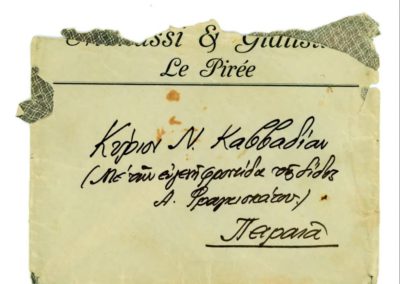 & Giulis
Le Pirée
Κύριον Ν. Καββαδίαν
(Μὲ τὴν εὐγενῆ φροντίδα τῆς δίδος
Α. Φραγκισκάτου)
Πειραιᾶ